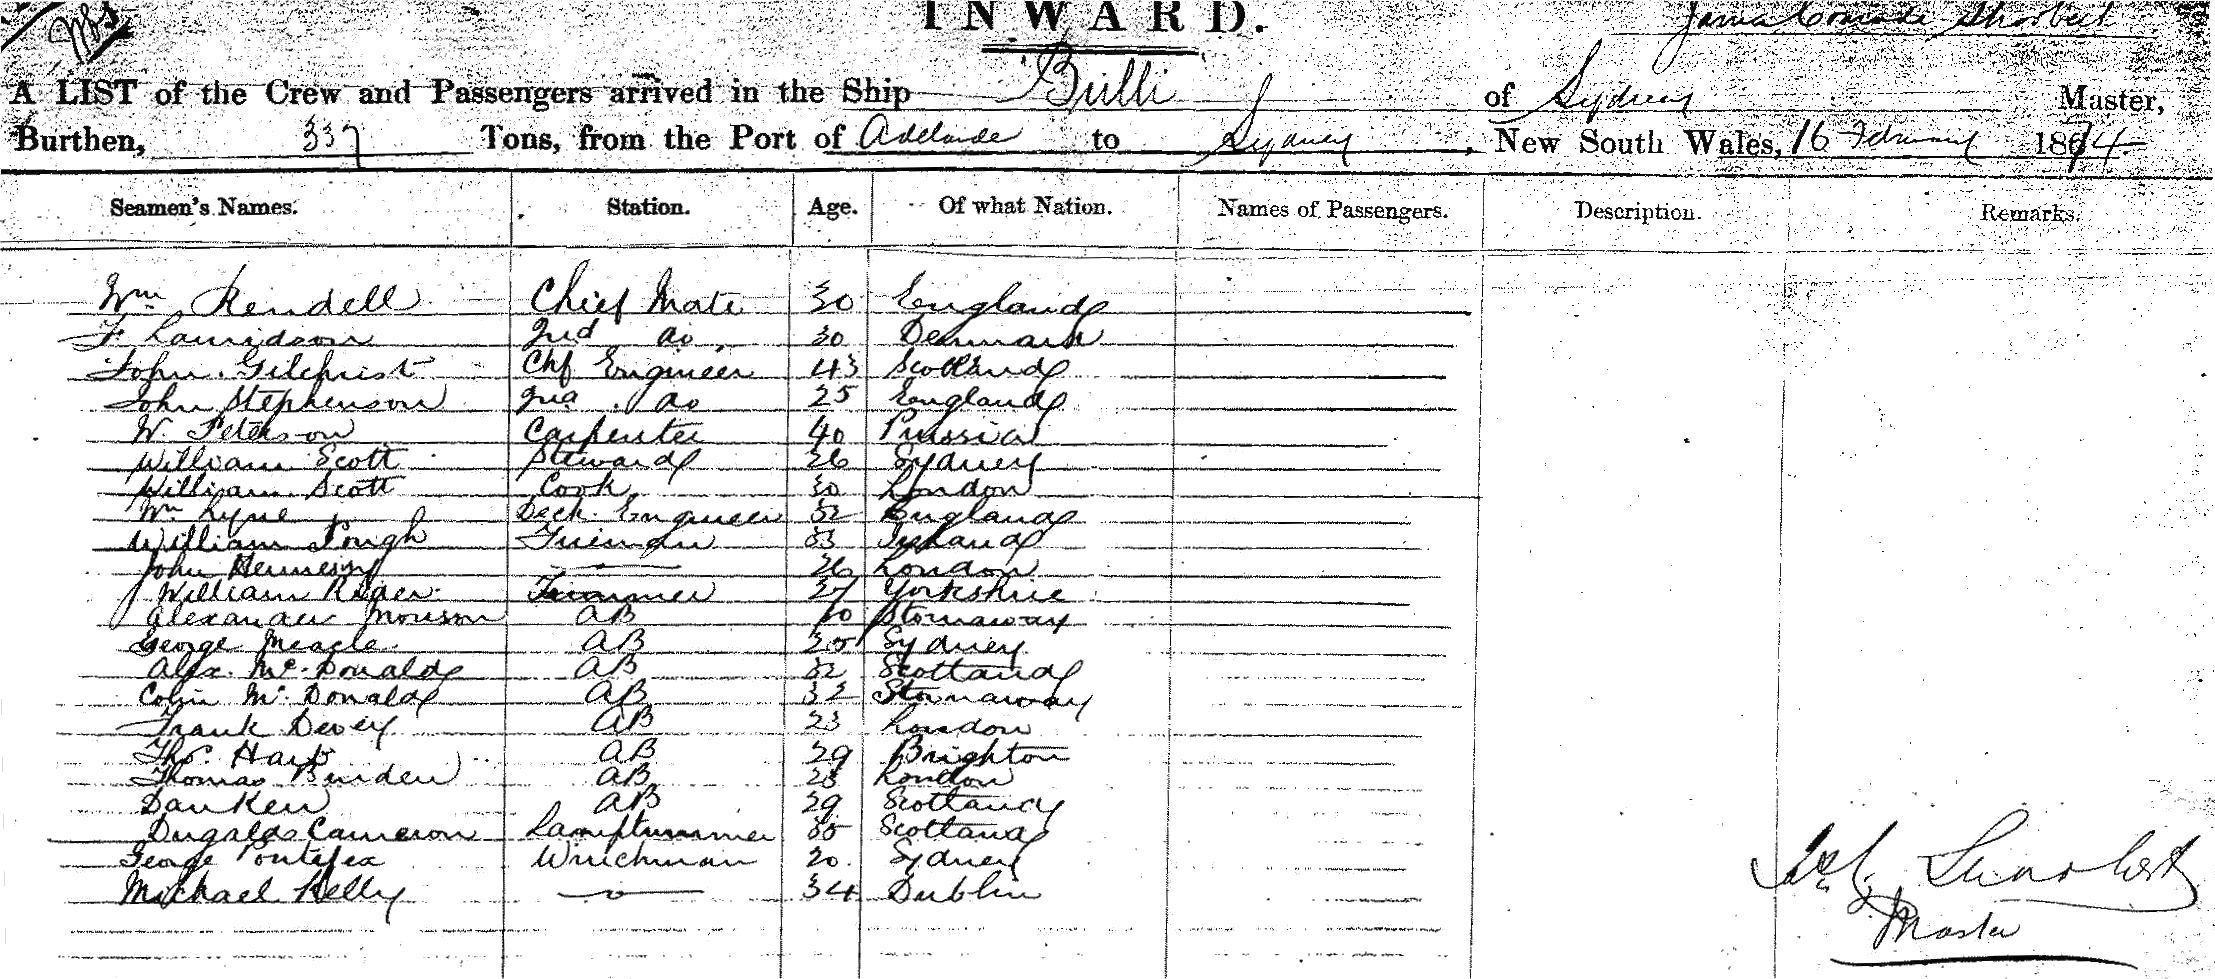 INWARD.
A LIST of the Crew and Passengers arrived in the Ship Bulli of Sydney Master,
Burthen, 337 Tons, from the Port of Adelaide to Sydney, New South Wales, 16 February 1874
Seamen's Names. Station. Age. Of what Nation. Names of Passengers. Description. Remarks.
Wm Rendell Chief Mate 30 England
F Lauridson 2nd do. 30 Denmark
John Gilchrist Chf Engineer 43 Scotland
John Stephenson 2nd do 25 England
W. Peterson Carpenter 40 Prussia
William Scott Steward 26 Sydney
William Scott Cook 30 London
Wm Lyne Deck Engineer 32 England
William Fireman 33 Ireland
John Hennesny 26 London
William Rider Trimmer 27 Yorkshire
Alexander Morison AB Stornaway
George Meagle AB Sydney
Alex. Mc Donald AB 32 Scotland
Colin Mc Donald AB 32 Stornaway
Frank Devey AB 23 London
Thos. AB 29 Brighton
Thomas Burden AB 23 London
Dan Ken AB 29 Scotland
Dugald Cameron Lamptrimmer Scotland
George Pontifex Winchman 20 Sydney
Michael Kelly —"— 34 Dublin
Master